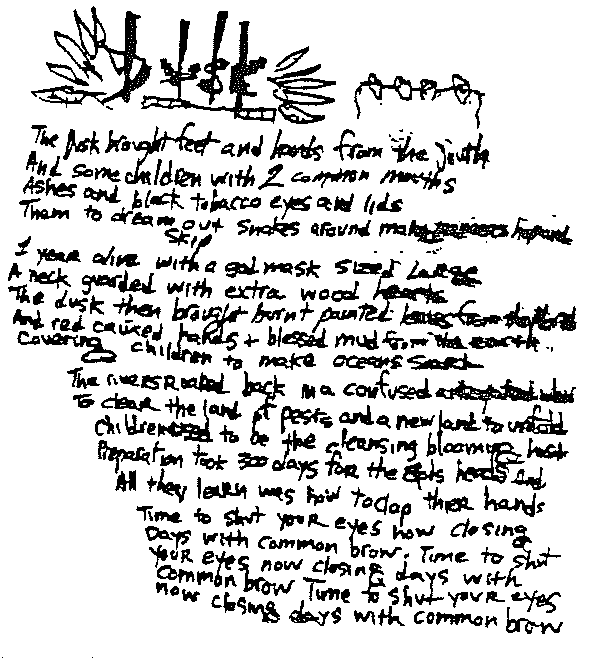 The Dusk brought feet and hands from the South
And some children with 2 common mouths
Ashes and black tobacco eyes and lids
Them to dream out snakes around
Skip
1 year alive with a god mask sized Large
A neck guarded with extra wood hearts
The dusk then brought burnt painted
And red caused hands + blessed mud from the earth
Covering children to make oceans search
The rivers Roared back in a confused
To clear the land of pests and a new land to unfold
Children to be the cleansing blooming host
Preparation took 300 days for the heads And
All they learn was how to clap thier hands
Time to shut your eyes now closing
Days with common brow. Time to shut
your eyes now closing days with
common brow Time to shut your eyes
now closing days with common brow